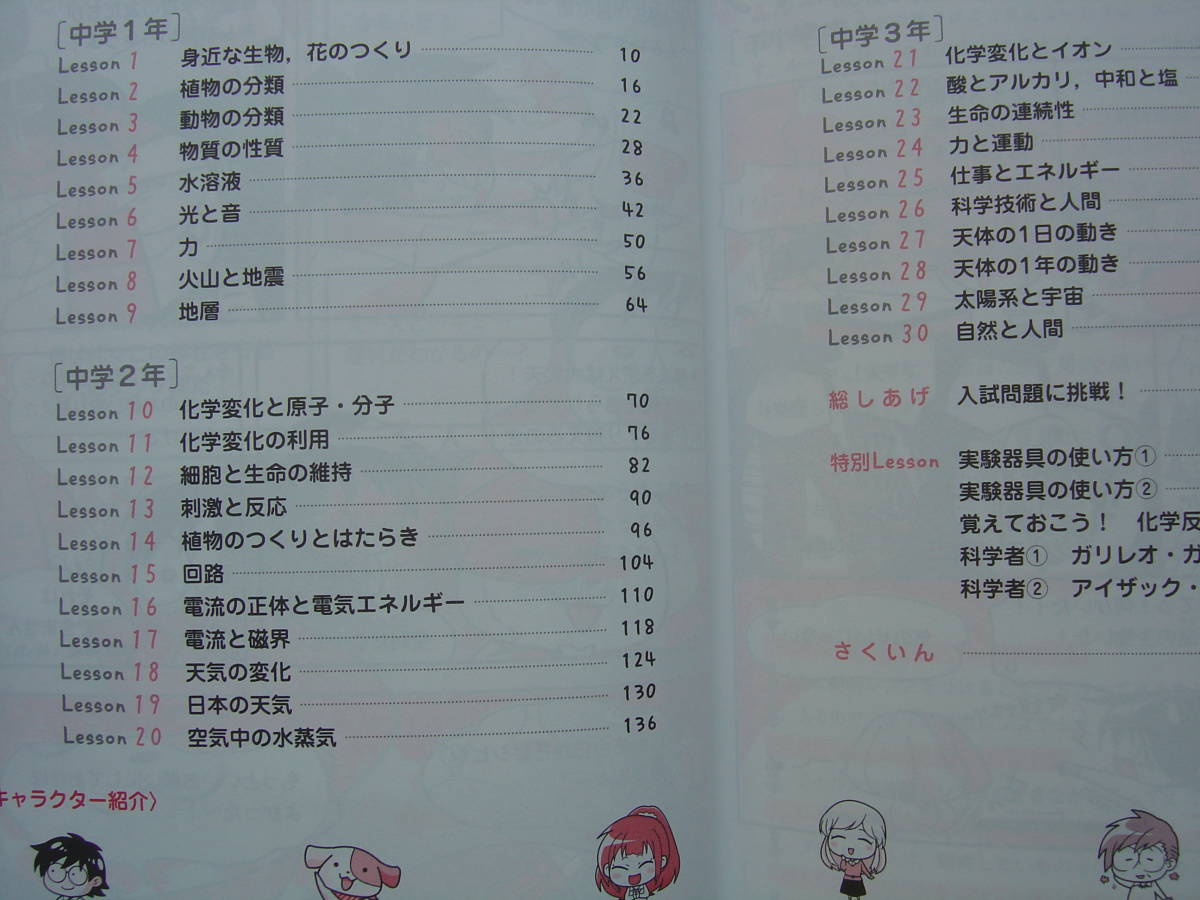 [中学1年]
Lesson 1 身近な生物，花のつくり 10
Lesson 2 植物の分類 16
Lesson 3 動物の分類 22
Lesson 4 物質の性質 28
Lesson 5 水溶液 36
Lesson 6 光と音 42
Lesson 7 力 50
Lesson 8 火山と地震 56
Lesson 9 地層 64
[中学2年]
Lesson 10 化学変化と原子・分子 70
Lesson 11 化学変化の利用 76
Lesson 12 細胞と生命の維持 82
Lesson 13 刺激と反応 90
Lesson 14 植物のつくりとはたらき 96
Lesson 15 回路 104
Lesson 16 電流の正体と電気エネルギー 110
Lesson 17 電流と磁界 118
Lesson 18 天気の変化 124
Lesson 19 日本の天気 130
Lesson 20 空気中の水蒸気 136
キャラクター紹介〉
[中学3年]
Lesson 21 化学変化とイオン
Lesson 22 酸とアルカリ，中和と塩
Lesson 23 生命の連続性
Lesson 24 力と運動
Lesson 25 仕事とエネルギー
Lesson 26 科学技術と人間
Lesson 27 天体の1日の動き
Lesson 28 天体の1年の動き
Lesson 29 太陽系と宇宙
Lesson 30 自然と人間
総しあげ 入試問題に挑戦！
特別Lesson 実験器具の使い方①
実験器具の使い方②
覚えておこう！ 化学反
科学者① ガリレオ・ガ
科学者② アイザック・
さくいん